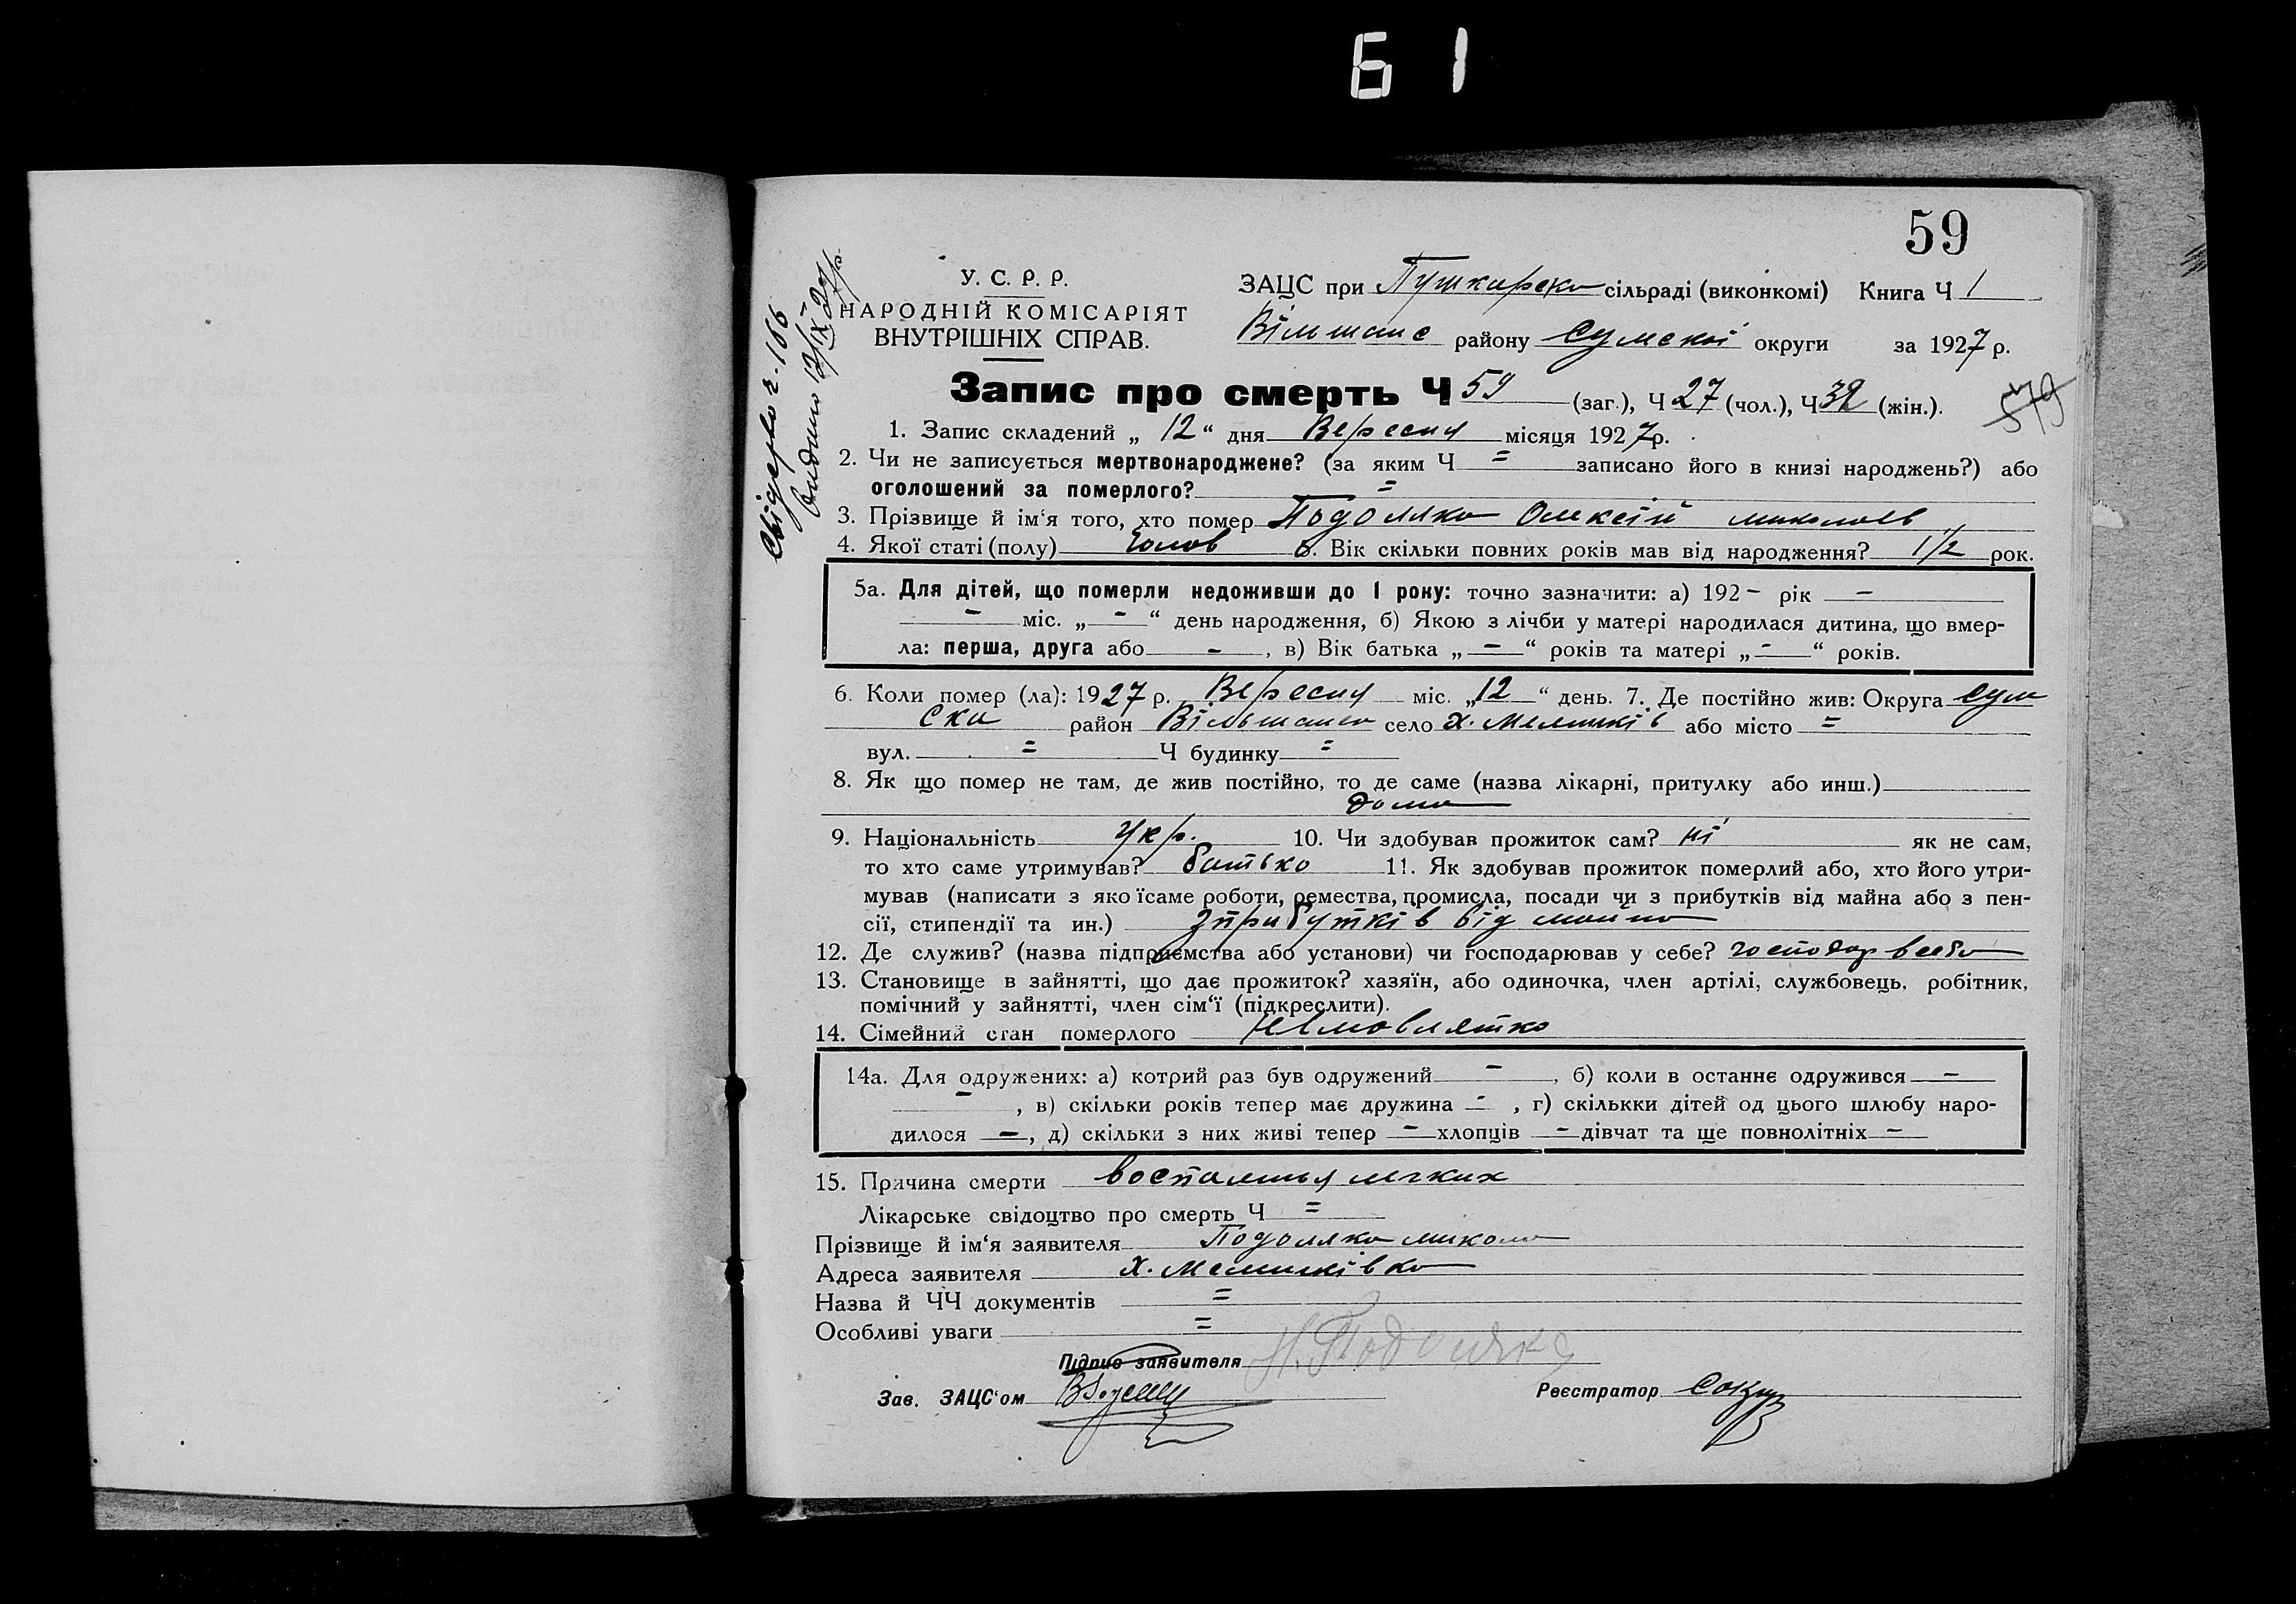 61
59
У. С. Р. Р.
НАРОДНІЙ КОМІСАРІЯТ
ВНУТРІШНІХ СПРАВ.
ЗАЦС при Пушкарско сільраді (виконкомі) Книга Ч 1
Вільшанс району Сумскої округи за 1927 р.
Свідецтво г. 166
видано 12/IX 27 р.
Запис про смерть Ч 59 (заг.), Ч 27 (чол.), Ч 32 (жін.).
579
1. Запис складений „ 12 “ дня Вересня місяця 1927 р.
2. Чи не записується мертвонароджене? (за яким Ч = записано його в книзі народжень?) або
оголошений за померлого? =
3. Прізвище й ім‘я того, хто помер Подоляко Олексій миколаєв
4. Якої статі (полу) Чолов 5. Вік скільки повних років мав від народження? 1 1/2 рок.
5а. Для дітей, що померли недоживши до 1 року: точно зазначити: а) 192 – рік –
– міс. „ – “ день народження, б) Якою з лічби у матері народилася дитина, що вмер-
ла: перша, друга або – , в) Вік батька „ – “ років та матері „ – “ років.
6. Коли помер (ла): 1927 р. Вересня міс. „ 12 “ день. 7. Де постійно жив: Округа Сум
ска район Вільшанск село х. Меликів або місто =
вул. = Ч будинку =
8. Як що помер не там, де жив постійно, то де саме (назва лікарні, притулку або инш.)
дома
9. Національність Укр. 10. Чи здобував прожиток сам? ні як не сам,
то хто саме утримував? батько 11. Як здобував прожиток померлий або, хто його утри-
мував (написати з якоїсаме роботи, ремества, промисла, посади чи з прибутків від майна або з пен-
сії, стипендії та ин.) зприбутків від майна
12. Де служив? (назва підприємства або установи) чи господарював у себе? господар в себе
13. Становище в зайнятті, що дає прожиток? хазяїн, або одиночка, член артілі, службовець, робітник,
помічний у зайнятті, член сім‘ї (підкреслити).
14. Сімейний стан померлого Немовлятко
14а. Для одружених: а) котрий раз був одружений – , б) коли в останнє одружився –
– , в) скільки років тепер має дружина – , г) скількки дітей од цього шлюбу наро-
дилося – , д) скільки з них живі тепер – хлопців – дівчат та ще повнолітніх –
15. Причина смерти воспаленья легких
Лікарське свідоцтво про смерть Ч =
Прізвище й ім‘я заявителя Подоляко микола
Адреса заявителя х.
Назва й ЧЧ документів =
Особливі уваги =
Підпис заявителя Н. Подоляко
Зав. ЗАЦС‘ом
Реєстратор